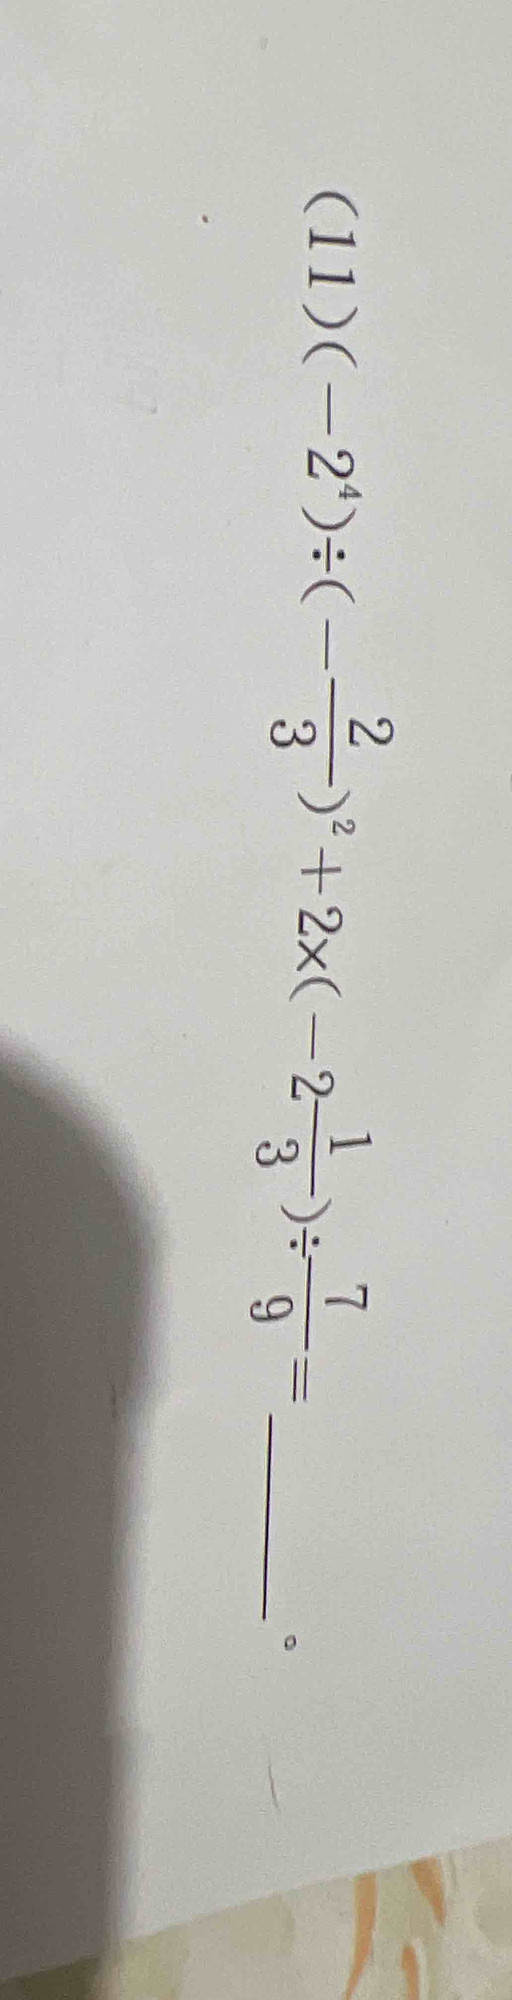 (11)(-2⁴)÷(-2/3)²+2×(-2 1/3)÷7/9=______。